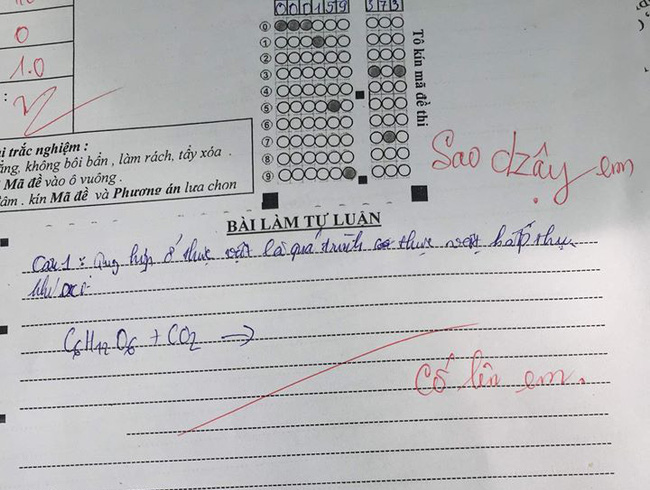 0 0 0 1 5 9
3 7 3
0
1.0
0
1
2
3
4
5
6
7
8
9
Tô kín mã đề thi
Sao dzậy em
i trắc nghiệm :
ẳng, không bôi bẩn , làm rách, tẩy xóa .
Mã đề vào ô vuông .
đâm . kín Mã đề và Phương án lưa chon
BÀI LÀM TỰ LUẬN
Câu 1 : Quang hợp ở thực vật là quá trình thực vật hấp thụ
khí oxi
C6H12O6 + CO2 →
Cố lên em.